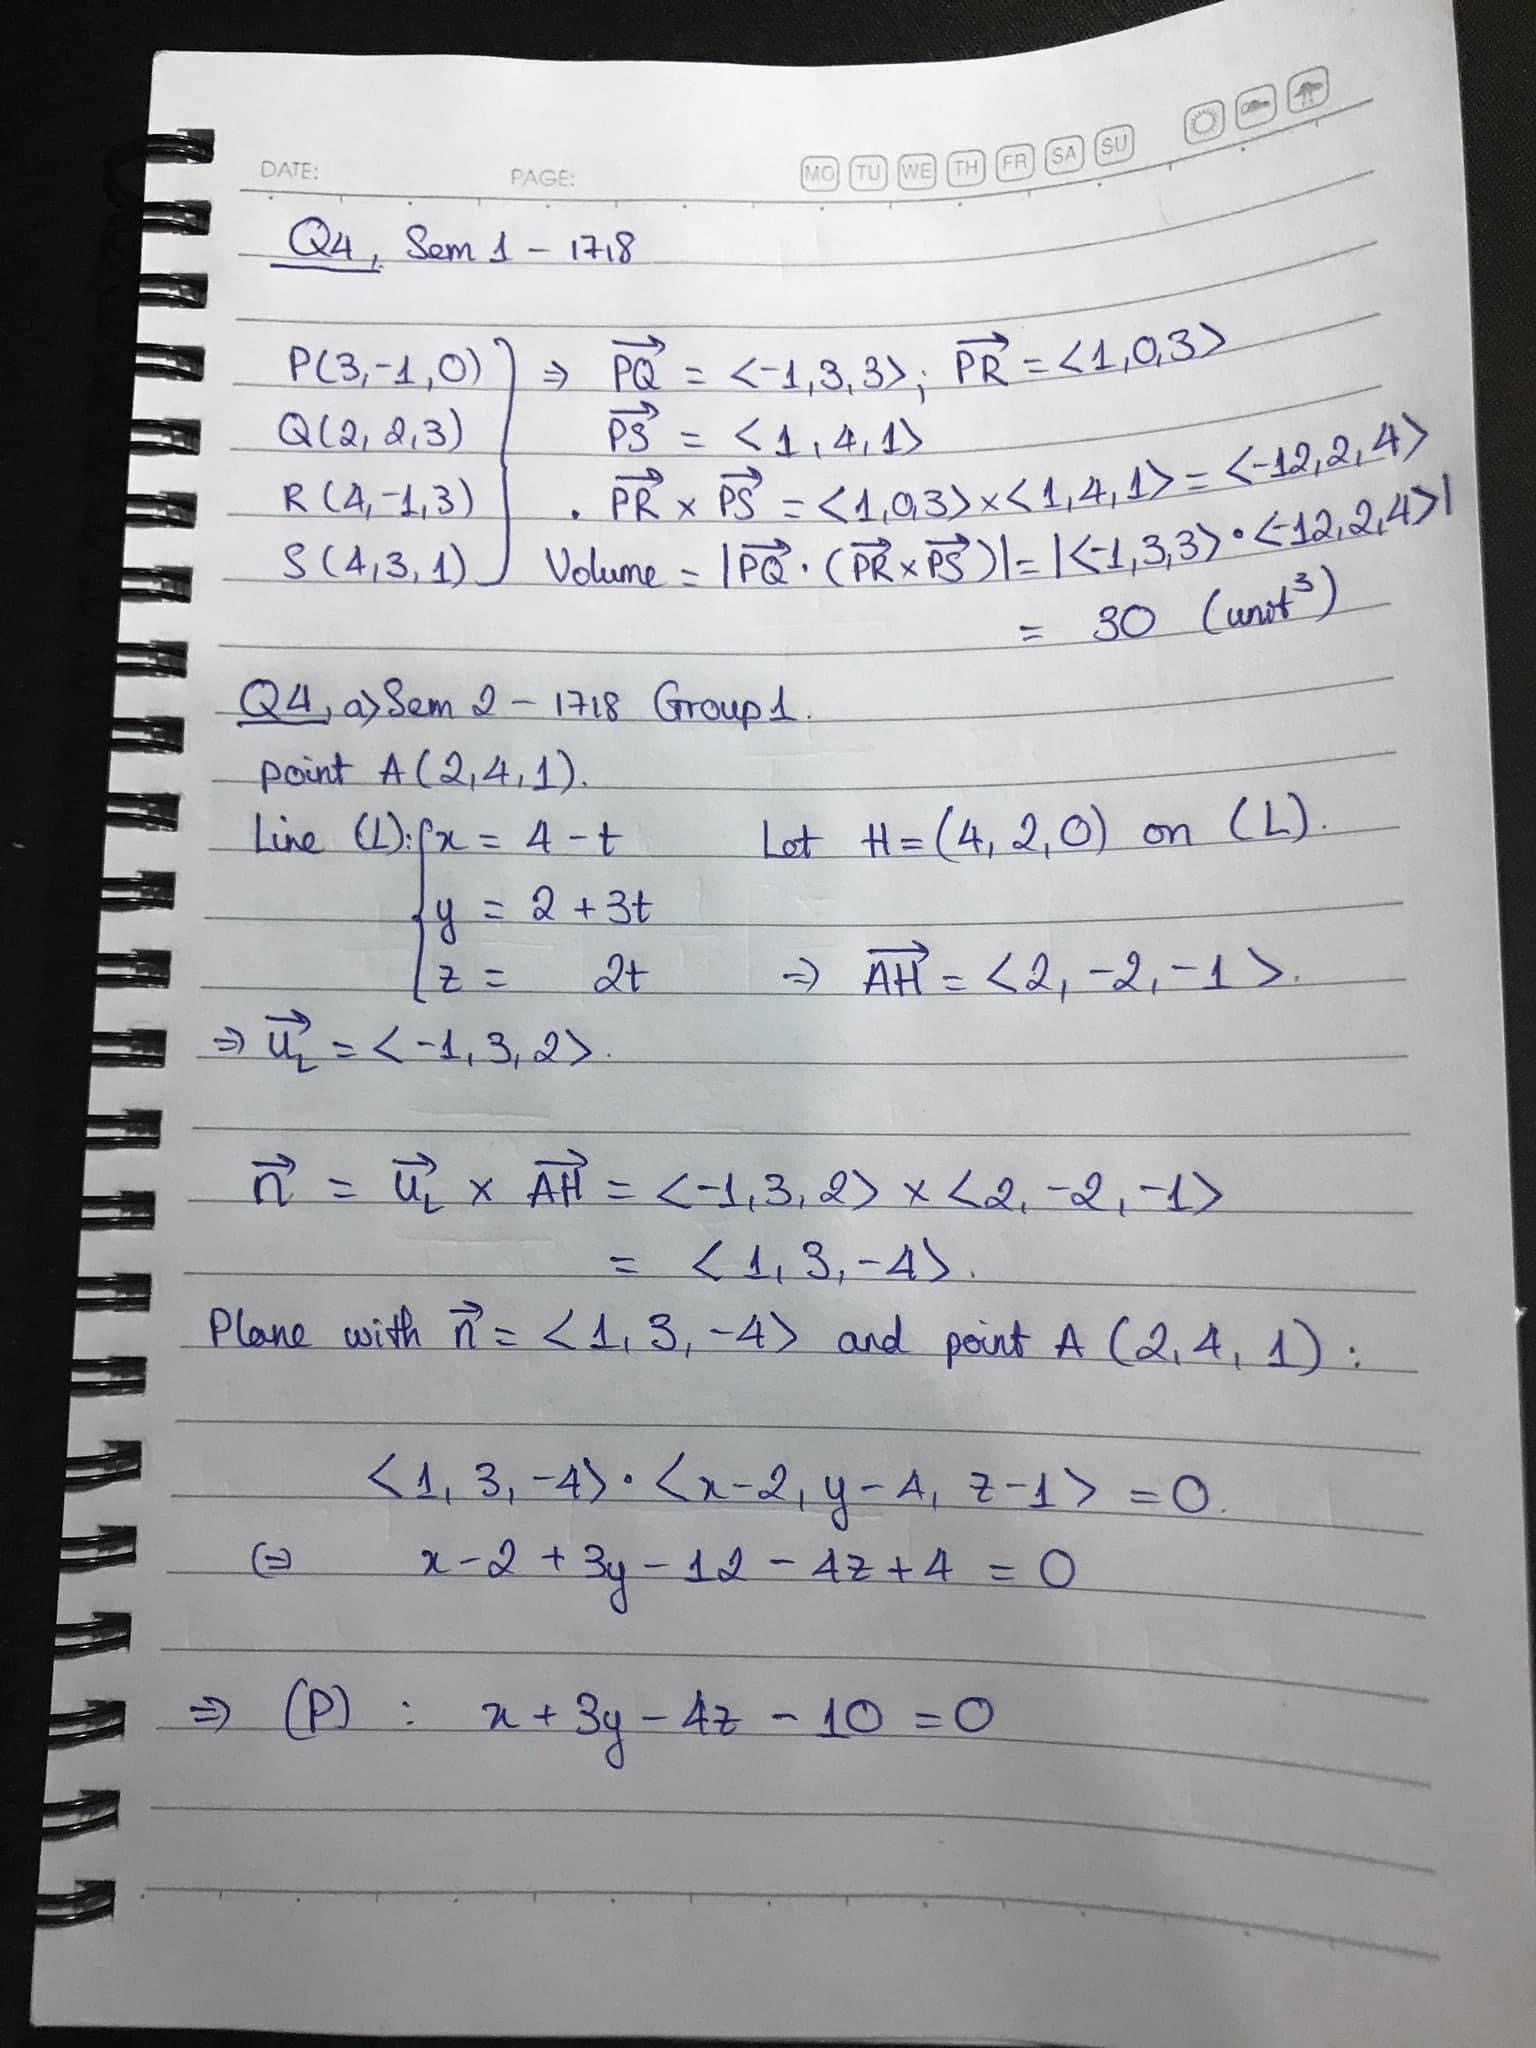 DATE: PAGE: MO TU WE TH FR SA SU
Q4, Sem 1 - 1718
P(3,-1,0) ⇒ PQ→ = <-1,3,3>; PR→ = <1,0,3>
Q(2,2,3) PS→ = <1,4,1>
R(4,-1,3) . PR→ × PS→ = <1,0,3>×<1,4,1> = <-12,2,4>
S(4,3,1) Volume = |PQ→ · (PR→ × PS→)| = |<-1,3,3> · <-12,2,4>|
= 30 (unit³)
Q4, a) Sem 2 - 1718 Group 1.
point A(2,4,1).
Line (L): { x = 4 - t Let H = (4,2,0) on (L).
y = 2 + 3t
z = 2t ⇒ AH→ = <2,-2,-1>.
⇒ u→L = <-1,3,2>.
n→ = u→L × AH→ = <-1,3,2> × <2,-2,-1>
= <1,3,-4>.
Plane with n→ = <1,3,-4> and point A(2,4,1):
<1,3,-4> · <x-2, y-4, z-1> = 0.
(=) x-2+3y-12-4z+4 = 0
⇒ (P) : x+3y-4z-10 = 0